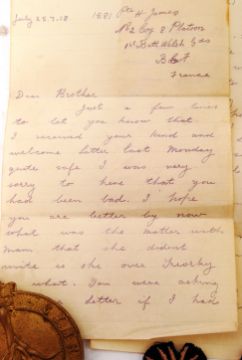 July 25.7.18 1581 Pte H James
No2 Coy 8 Platoon
1st Batt Welsh Gds
B E F
France
Dear Brother
Just a few lines
to let you know that
I received your kind and
welcome letter last Monday
quite safe I was very
sorry to hear that you
had been bad. I hope
you are better by now
what was the matter with
mam that she didnt
write is she over Treorky
or what. You were asking
letter if I had